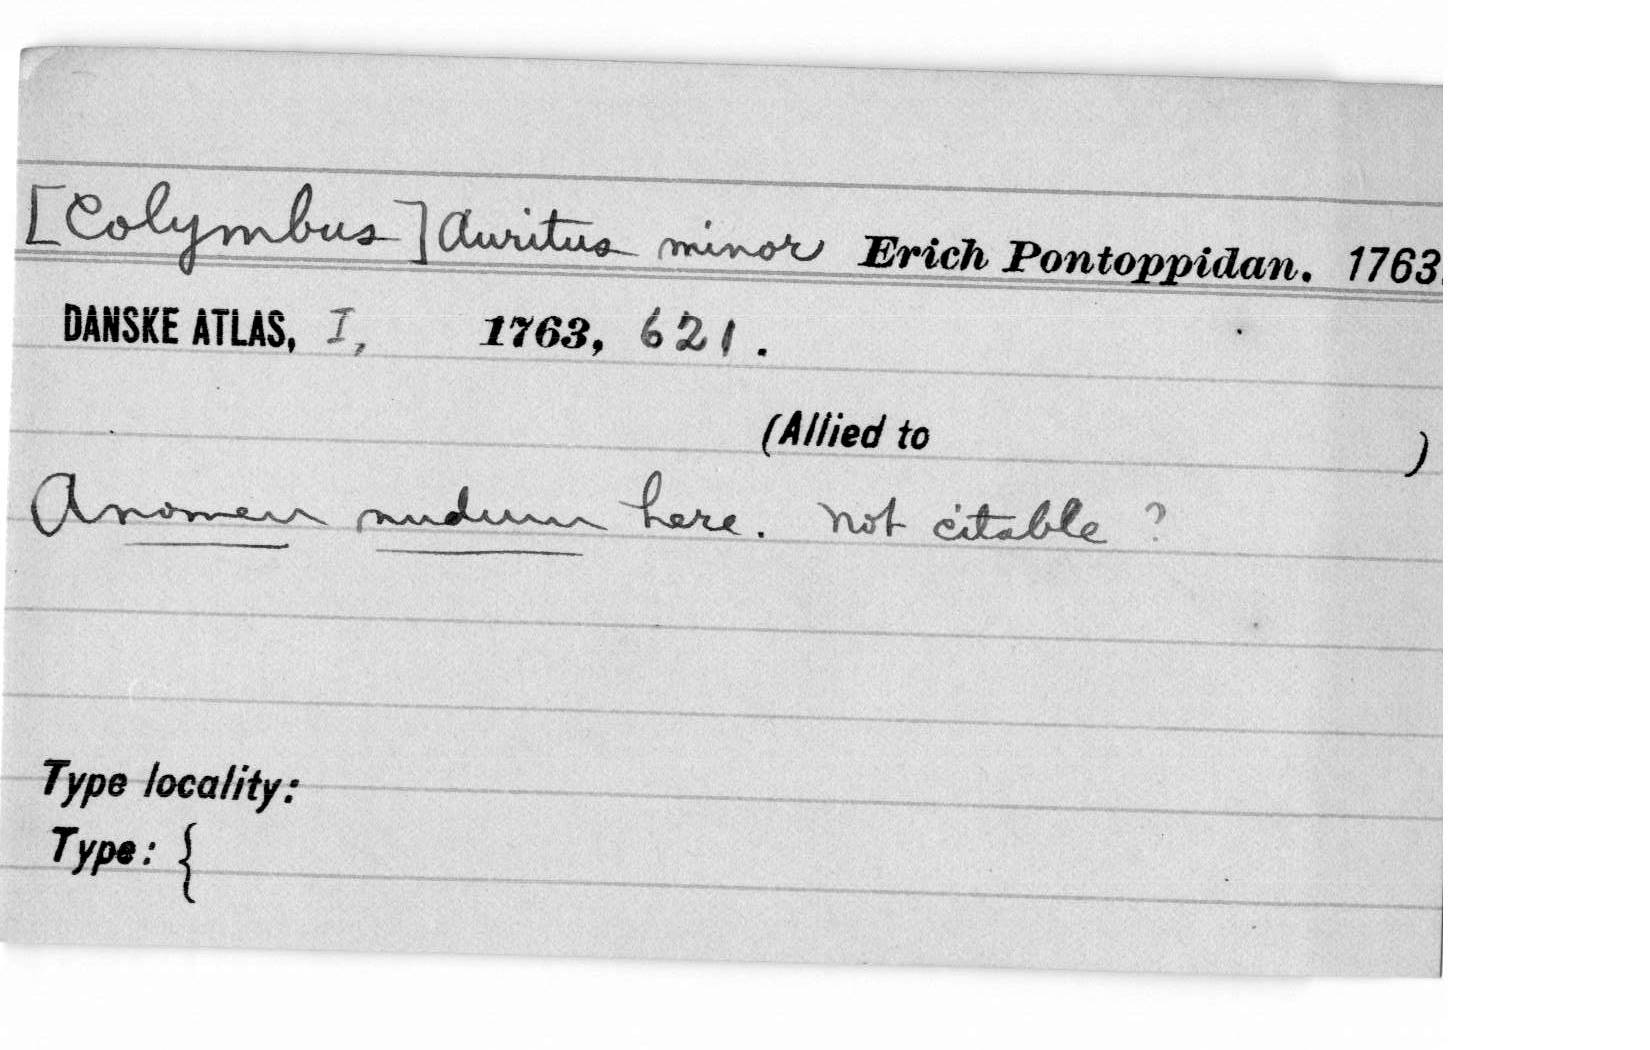 [Colymbus] Auritus minor Erich Pontoppidan. 1763.
DANSKE ATLAS, I, 1763, 621.
(Allied to )
A nomen nudum here. Not citable ?
Type locality:
Type: {